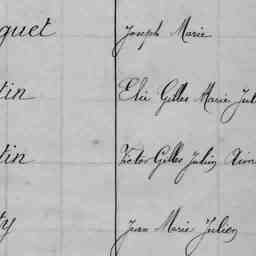 guet Joseph Marie
tin Elie Gilles Marie Jul
tin Victor Gilles Julien Aim
ty Jean Marie Julien